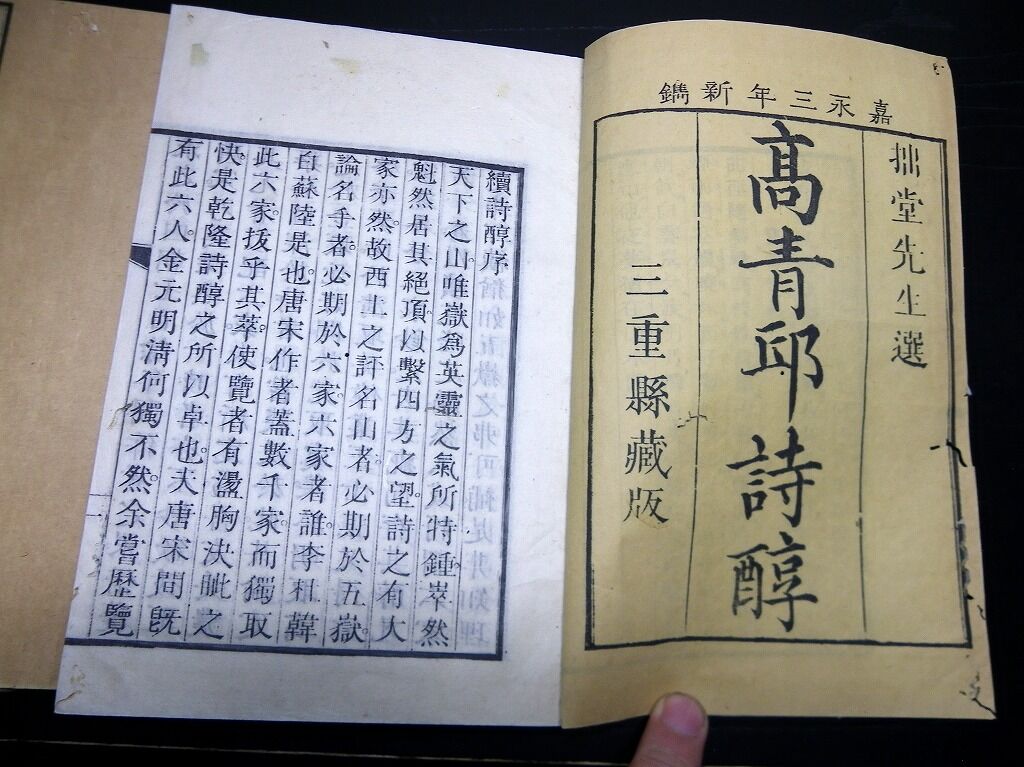 嘉永三年新鐫
拙堂先生選
高青邱詩醇
三重縣藏版
續詩醇序
天下之山唯嶽為英靈之氣所特鍾崒然
魁然居其絕頂以繫四方之望詩之有大
家亦然故西土之評名山者必期於五嶽
論名手者必期於六家六家者誰李杜韓
白蘇陸是也唐宋作者蓋數千家而獨取
此六家拔乎其萃使覽者有盪胸決眦之
快是乾隆詩醇之所以卓也夫唐宋間既
有此六人金元明清何獨不然余嘗歷覽